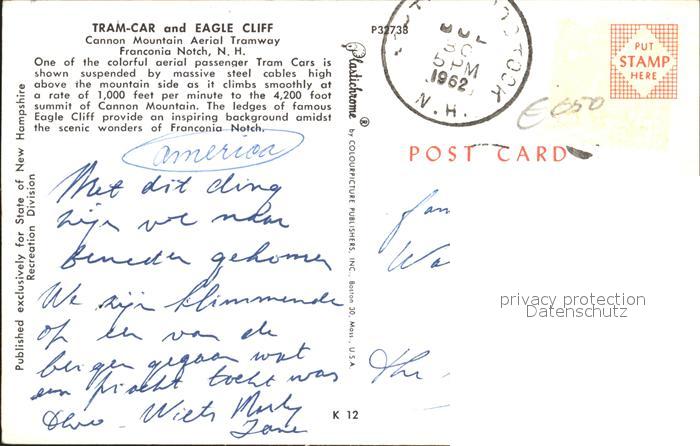 TRAM-CAR and EAGLE CLIFF
Cannon Mountain Aerial Tramway
Franconia Notch, N. H.
One of the colorful aerial passenger Tram Cars is
shown suspended by massive steel cables high
above the mountain side as it climbs smoothly at
a rate of 1,000 feet per minute to the 4,200 foot
summit of Cannon Mountain. The ledges of famous
Eagle Cliff provide an inspiring background amidst
the scenic wonders of Franconia Notch.
america
Met dit ding
zijn we naar
beneden gekomen
We zijn klimmende
op een van de
bergen gegaan wat
een pracht tocht was
Wiets
Published exclusively for State of New Hampshire
Recreation Division
Plastichrome ® by COLOURPICTURE PUBLISHERS, INC., Boston 30, Mass., U.S.A.
P32738
K 12
30
5 PM
1962
N. H.
PUT
STAMP
HERE
POST CARD
privacy protection
Datenschutz